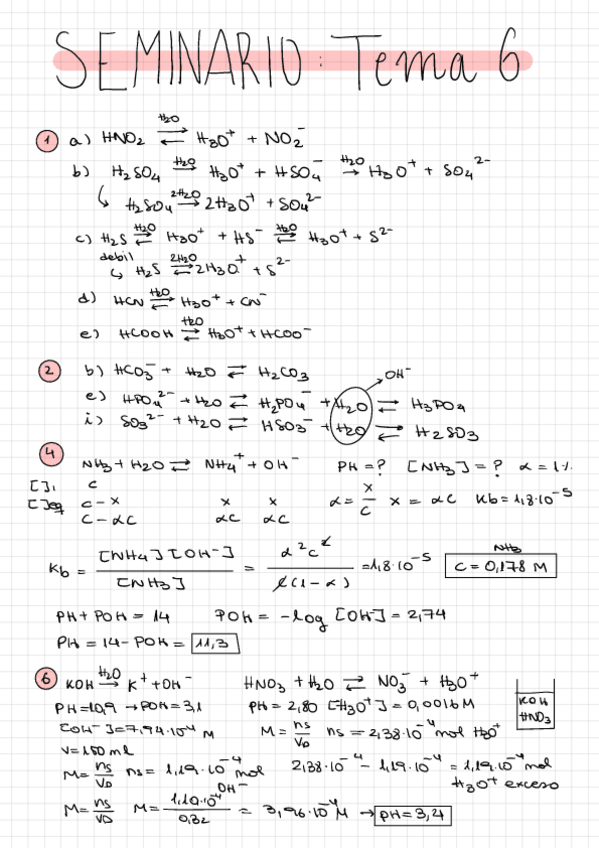 SEMINARIO: Tema 6
1 a) HNO2 ⇌ (H2O) H3O+ + NO2-
b) H2SO4 → (H2O) H3O+ + HSO4- → (H2O) H3O+ + SO4 2-
↳ H2SO4 → (2H2O) 2H3O+ + SO4 2-
c) H2S ⇌ (H2O) H3O+ + HS- ⇌ (H2O) H3O+ + S2-
debil
↳ H2S ⇌ (2H2O) 2H3O+ + S2-
d) HCN ⇌ (H2O) H3O+ + CN-
e) HCOOH ⇌ (H2O) H3O+ + HCOO-
2 b) HCO3- + H2O ⇌ H2CO3
OH-
e) HPO4 2- + H2O ⇌ H2PO4- + H2O ⇌ H3PO4
i) SO3 2- + H2O ⇌ HSO3- + H2O ⇌ H2SO3
4 NH3 + H2O ⇌ NH4+ + OH- PH = ? [NH3] = ? α = 1%
[]i c
[]eq c - x x x α = x/c x = αc Kb = 1,8·10-5
c - αc αc αc
Kb = [NH4][OH-]/[NH3] = α2c2/c(1-α) = 1,8·10-5 NH3 C = 0,178 M
PH + POH = 14 POH = -log [OH] = 2,74
PH = 14 - POH = 11,3
6 KOH → (H2O) K+ + OH- HNO3 + H2O ⇌ NO3- + H3O+
PH = 10,9 → POH = 3,1 PH = 2,80 [H3O+] = 0,0016 M KOH HNO3
[OH-] = 7,94·10-4 M M = ns/VD ns = 2,38·10-4 mol H3O+
V = 150 ml
M = ns/VD ns = 1,19·10-4 mol OH- 2,38·10-4 - 1,19·10-4 = 1,19·10-4 mol H3O+ exceso
M = ns/VD M = 1,19·10-4/0,32 = 3,96·10-4 M → PH = 3,4